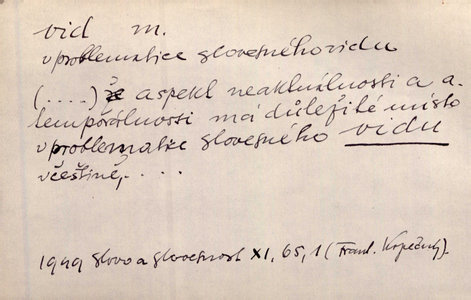 vid m.
v problematice slovesného vidu
(....) že aspekt neaktuálnosti a a-
temporálnosti má důležité místo
v problematice slovesného vidu
v češtině, ....
1949 Slovo a slovesnost XI, 65, 1 (Frant. Kopečný).